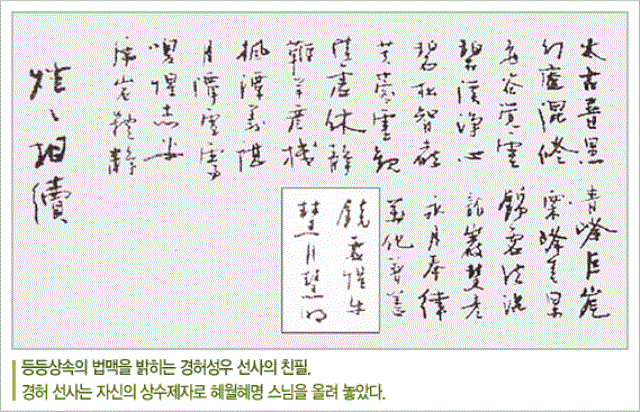 太古普愚
幻庵混修
龜谷覺雲
碧溪淨心
碧松智嚴
芙蓉靈觀
清虛休靜
鞭羊彦機
楓潭義諶
月潭雪霽
喚惺志安
虎岩體淨
青峰巨岸
栗峰青杲
錦虛法沾
龍巖慧彦
永月奉律
萬化普善
鏡虛惺牛
慧月慧明
灯〻相續
등등상속의 법맥을 밝히는 경허성우 선사의 친필.
경허 선사는 자신의 상수제자로 혜월혜명 스님을 올려 놓았다.